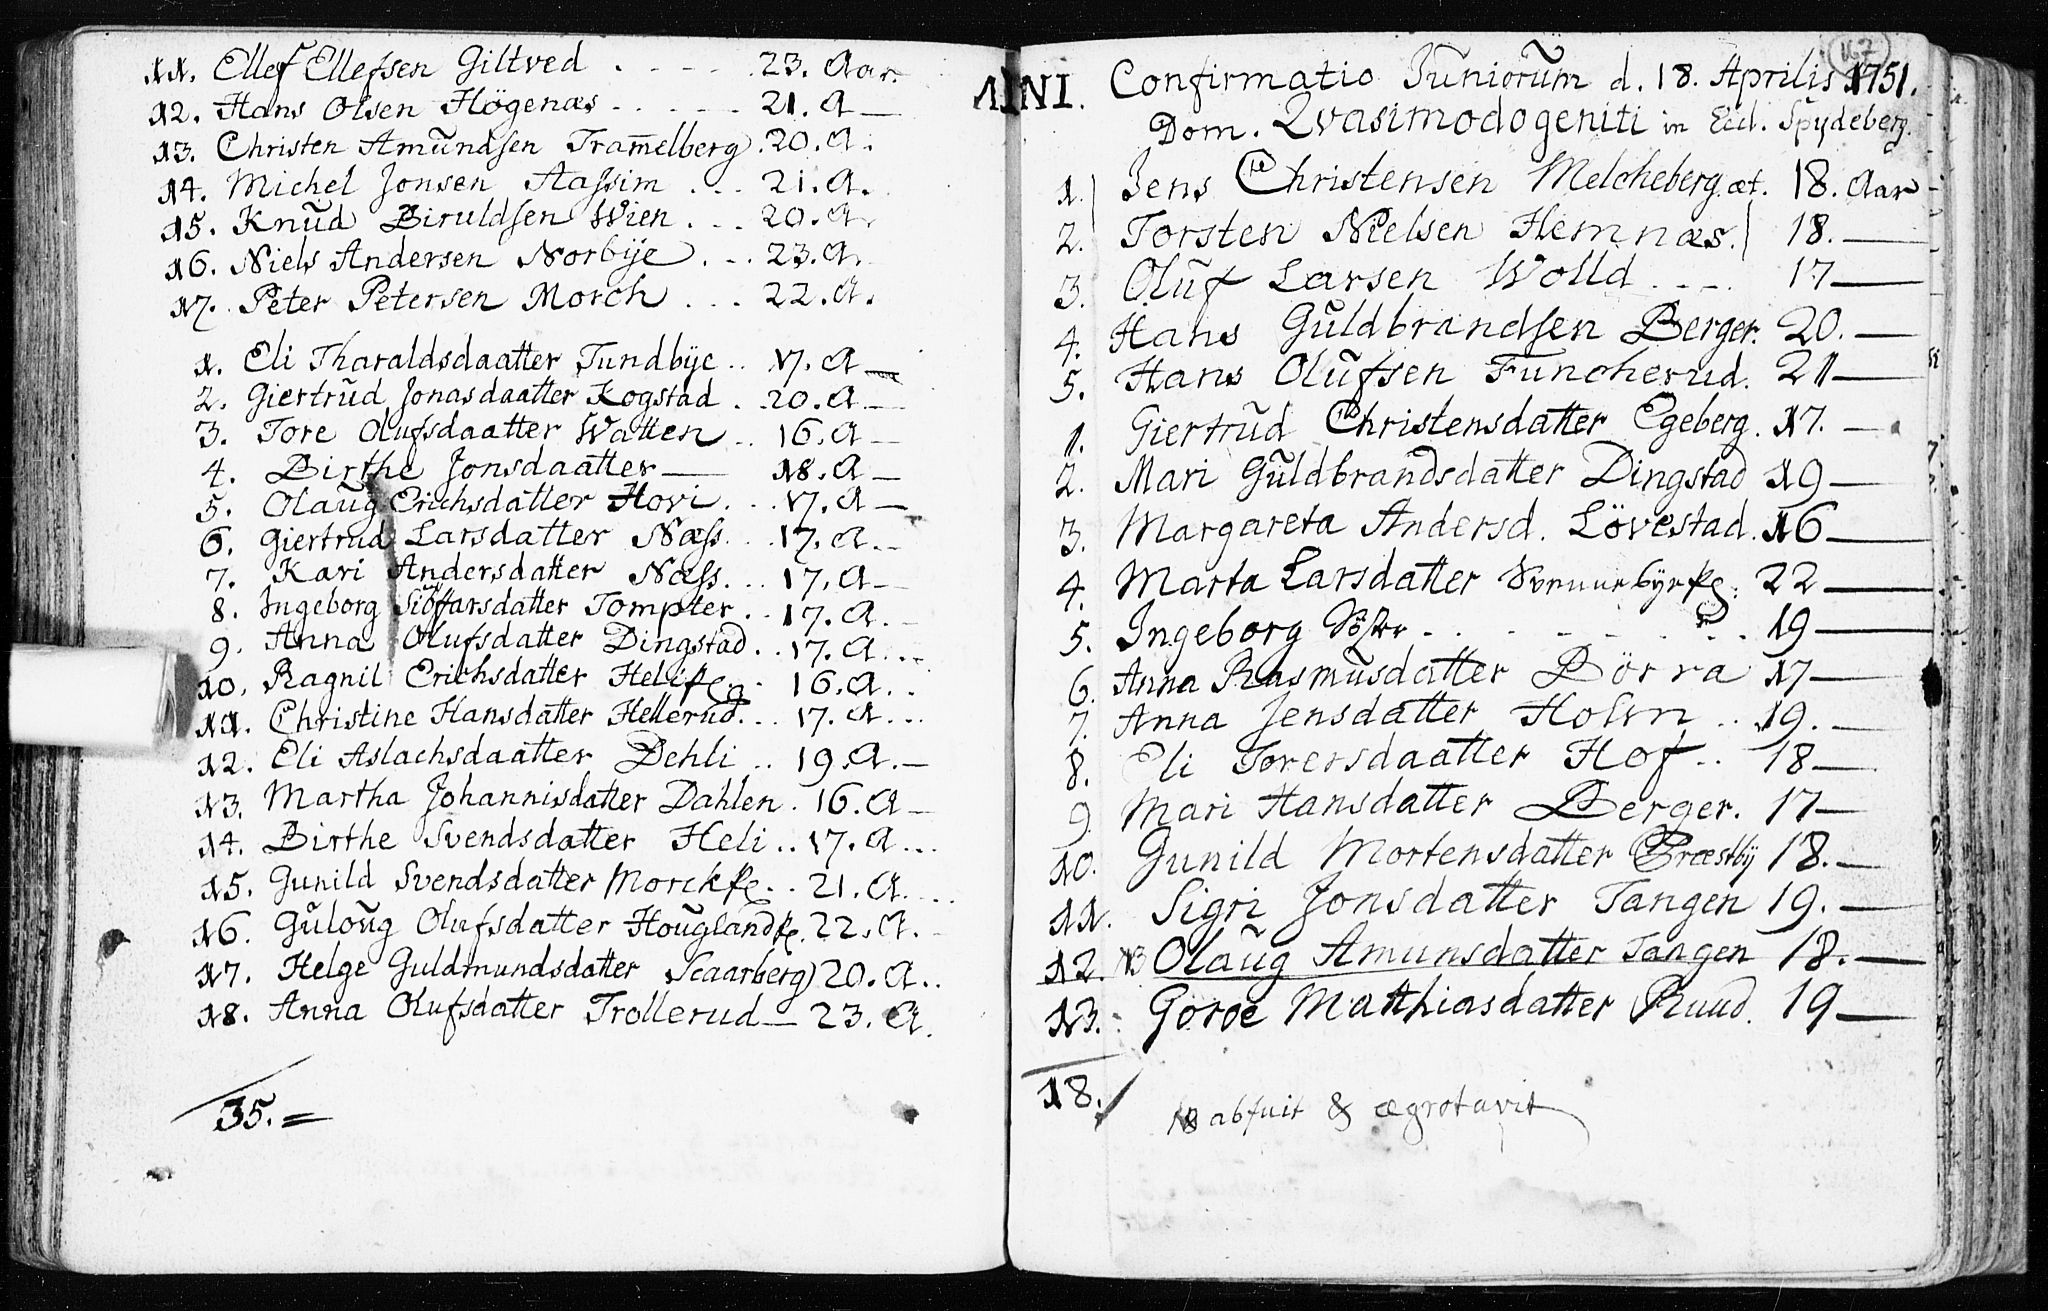 11. Ellef Ellefsen Giltved . . . . . 23. Aar.
12. Hans Olsen Högenæs . . . . . 21. A
13. Christen Amundsen Tram̄elberg . 20. A.
14. Michel Jonsen Aassim . . . 21. A.
15. Knud Biruldsen Wien . . . 20. A.
16. Niels Andersen Norbÿe . . . 23. A.
17. Peter Petersen Morch . . . 22. A.
1. Eli Tharaldsdaatter Tundbÿe . . 17. A
2. Giertrud Jonasdaatter Kogstad . . 20. A
3. Tore Olufsdaatter Watten . . 16. A
4. Birthe Jonsdaatter — 18. A
5. Olaug Erichsdatter Hovi . . . 17. A
6. Giertrud Larsdatter Næss . . 17. A.
7. Kari Andersdatter Næss . . . 17. A
8. Ingeborg Siöffarsdatter Tompter . . 17. A.
9. Anna Olufsdatter Dingstad . . 17. A . . .
10. Ragnil Erichsdatter . . 16. A . .
11. Christine Hansdatter Hellerud . . . 17. A . . .
12. Eli Aslachsdaatter Dehli . . 19. A.
13. Martha Johannisdatter Dahlen . 16. A
14. Birthe Svendsdatter Heli . . 17. A . . .
15. Gunild Svendsdatter . . 21. A . . .
16. Guloug Olufsdatter 22. A.
17. Helge Guldmundsdatter Scaarberg) 20. A . .
18. Anna Olufsdatter Trollerud — 23. A.
35. =
167
Confirmatio Juniorum d. 18. Aprilis 1751.
Dom. Qvasimodogeniti in Eccl. Spÿdeberg.
1. Jens Christensen Melcheberg. æt. 18. Aar
2. Torsten Nielsen Hemnæs. 18. —
3. Oluf Larsen Wolld . . . . 17 —
4. Hans Guldbrandsen Berger. 20. —
5. Hans Olufsen Funcherud. 21 —
1. Giertrud Christensdatter Egeberg. 17. —
2. Mari Guldbrandsdatter Dingstad 19 —
3. Margareta Andersd. Lövestad. 16 —
4. Marta Larsdatter 22 —
5. Ingeborg . . . . . . . 19 —
6. Anna Rasmusdatter Börra 17 —
7. Anna Jensdatter Holm . . 19. —
8. Eli Torersdaatter Hof . . 18 —
9. Mari Hansdatter Berger. 17 —
10. Gunild Mortensdatter Præstbÿ 18. —
11. Sigri Jonsdatter Tangen 19. —
12. NB Olaug Amunsdatter Tangen 18. —
13. Goroe Matthiasdatter Ruud. 19 —
18.
NB abfuit & ægrotavit